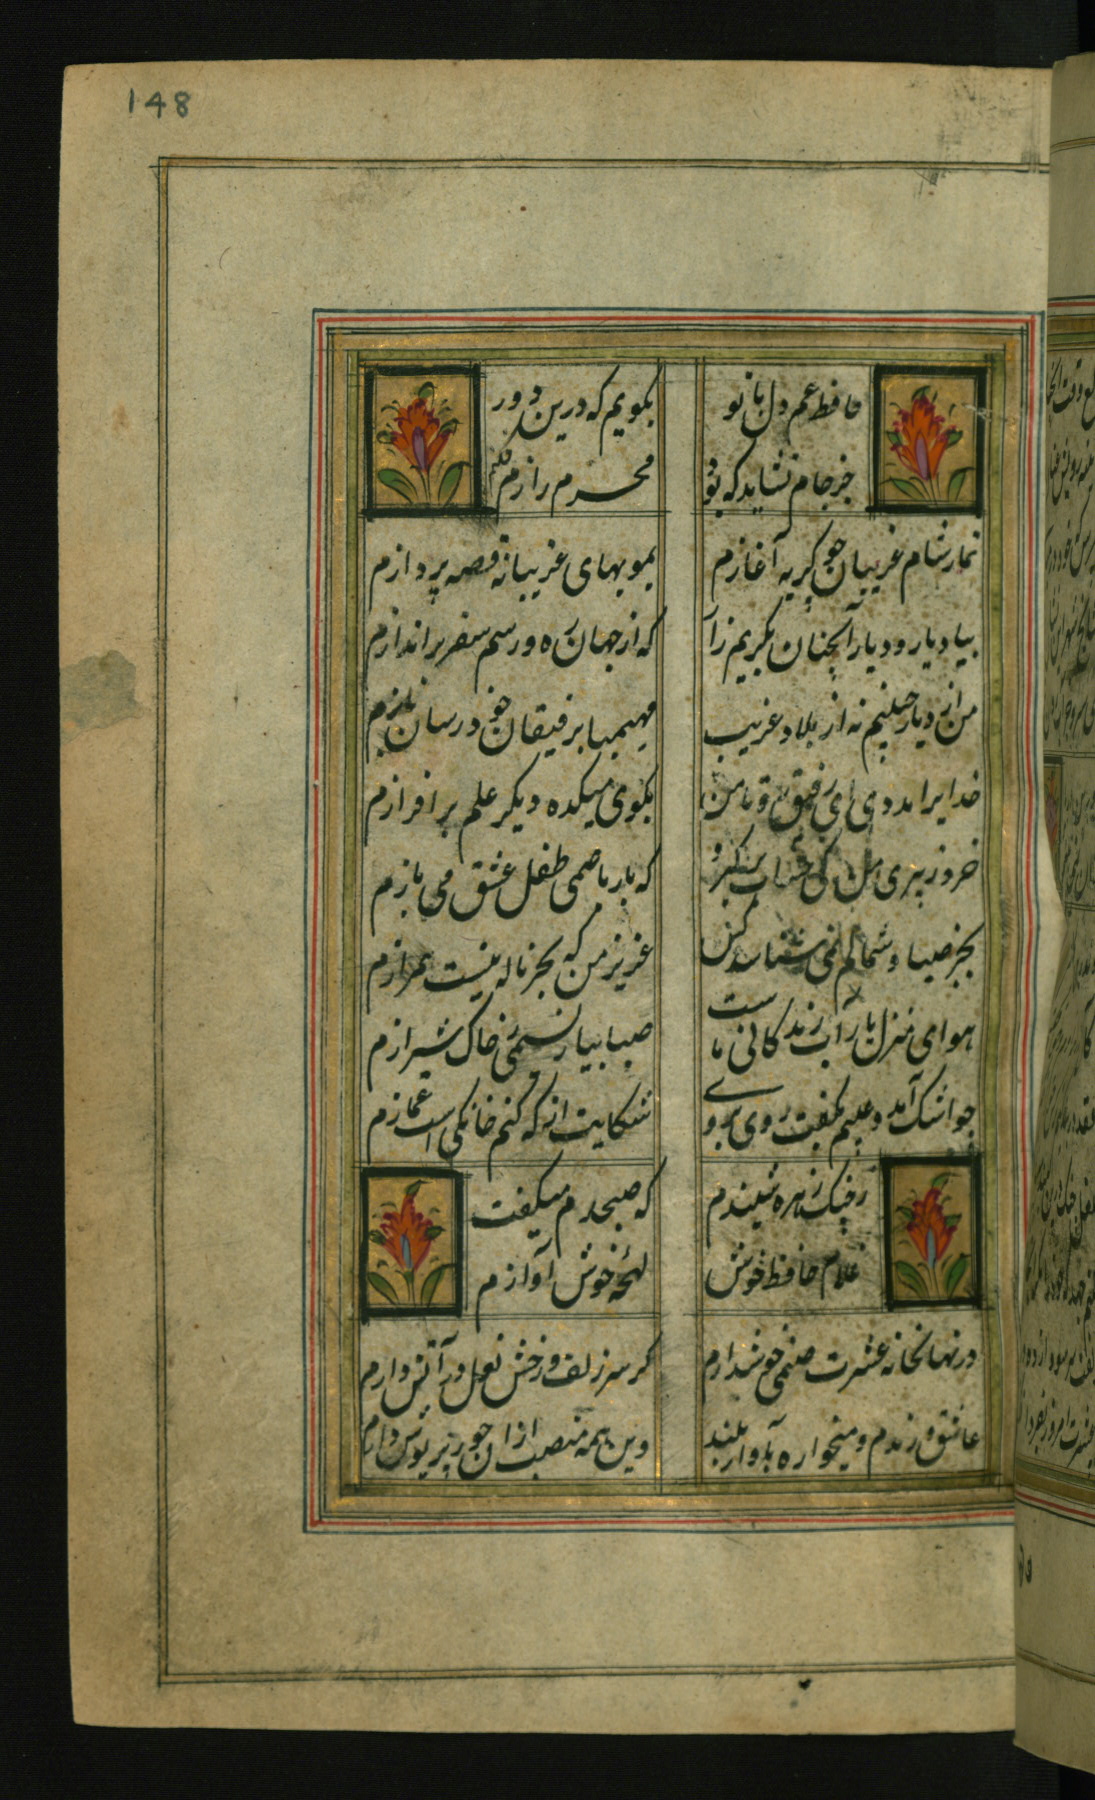 148
حافظ غم دل با تو
بکویم که درین دور
جز جام نشاید که بود
محرم رازم
نماز شام غریبان چو کریه آغازم
بمویهای غریبانه قصه پردازم
بیاد یار و دیار آنچنان بکریم زار
که از جهان ره و رسم سفر براندازم
من از دیار حبیبم نه از بلاد غریب
مهیمنا برفیقان خود رسان بازم
خدایرا مددی ای رفیق ره تا من
بکوی میکده دیکر علم برافرازم
خرد ز پیری من کی حساب برکیرد
که باز با صنمی طفل عشق می بازم
بجز صبا و شمالم نمی شناسد کس
عزیز من که بجز ناله نیست همرازم
هوای منزل یار آب زندکانی ماست
صبا بیار نسیمی ز خاک شیرازم
چو اشک آمد و عیبم بکفت روی بروی
شکایت از که کنم خانکی است غمازم
ز چنک زهره شنیدم
که صبحدم میکفت
غلام حافظ خوش
لهجه خوش آوازم
در نهانخانه عشرت صنمی خوش دارم
کز سر زلف و رخش نعل در آتش دارم
عاشق و رندم و میخواره بآواز بلند
وین همه منصب از ان حور پریوش دارم